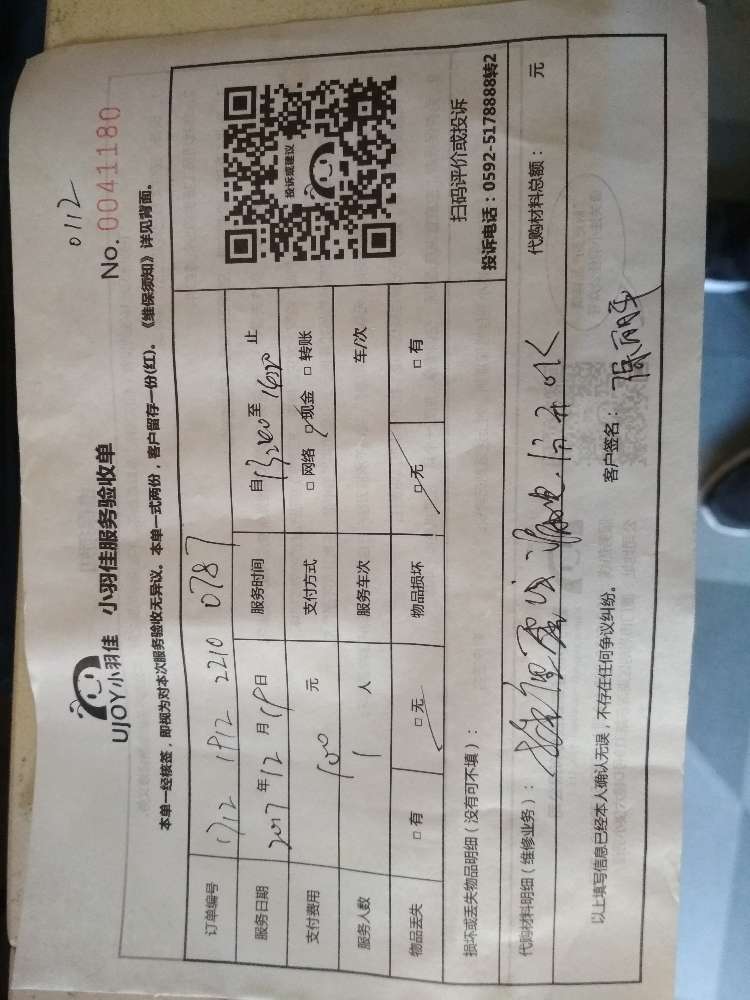 0112
UJOY小羽佳 小羽佳服务验收单 No. 0041180
本单一经核签，即视为对本次服务验收无异议。本单一式两份，客户留存一份(红)。《维保须知》详见背面。
订单编号 1712 1912 2210 0787
服务日期 2017年12月19日 服务时间 自 至 止
支付费用 100 元 支付方式 □ 网络 □ 现金 □ 转账
服务人数 1 人 服务车次 车/次
物品丢失 □ 有 □ 无 物品损坏 □ 无 □ 有
投诉或建议
扫码评价或投诉
投诉电话：0592-5178888转2
损坏或丢失物品明细（没有可不填）：
代购材料明细（维修业务）： 代购材料总额： 元
以上填写信息已经本人确认无误，不存在任何争议纠纷。 客户签名：